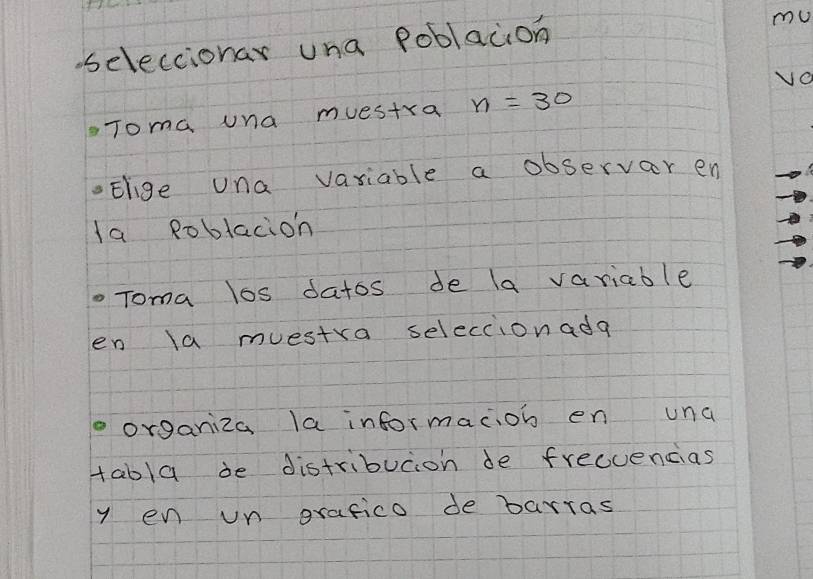 • seleccionar una Población
• Toma una muestra n = 30
• Elige una variable a observar en
la Población
• Toma los datos de la variable
en la muestra seleccionada
• organiza la información en una
tabla de distribución de frecuencias
y en un grafico de barras
mu
va